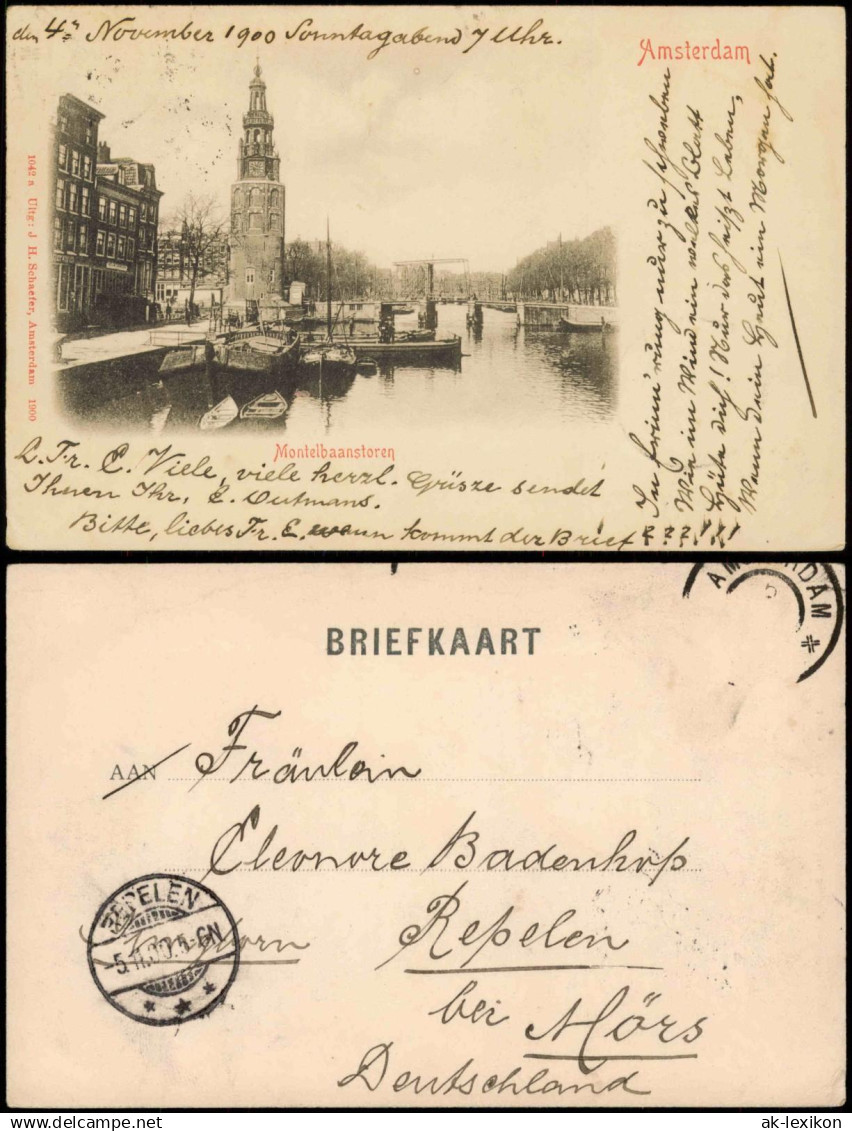 den 4ten November 1900 Sonntagabend 7 Uhr.
Amsterdam
1042 a Uitg: J. H. Schaefer, Amsterdam 1900
Montelbaanstoren
L. Fr. E. Viele, viele herzl. Grüsze sendet
Ihnen Ihr, E. Outmans.
Bitte, liebes Frl. E. wann kommt der Brief ? ? ? ! ! !
In Erinn'rung nur zu schweben
Wie im Wind ein welkes Blatt
Hüte dich! Nur das heißt Leben,
Wenn dein Heut ein Morgen hat.
BRIEFKAART
AMSTERDAM
5
AAN Fräulein
Eleonore Badenhop
Repelen
bei Mörs
Deutschland
REPELEN
5.11.00.5-6N
ak-lexikon